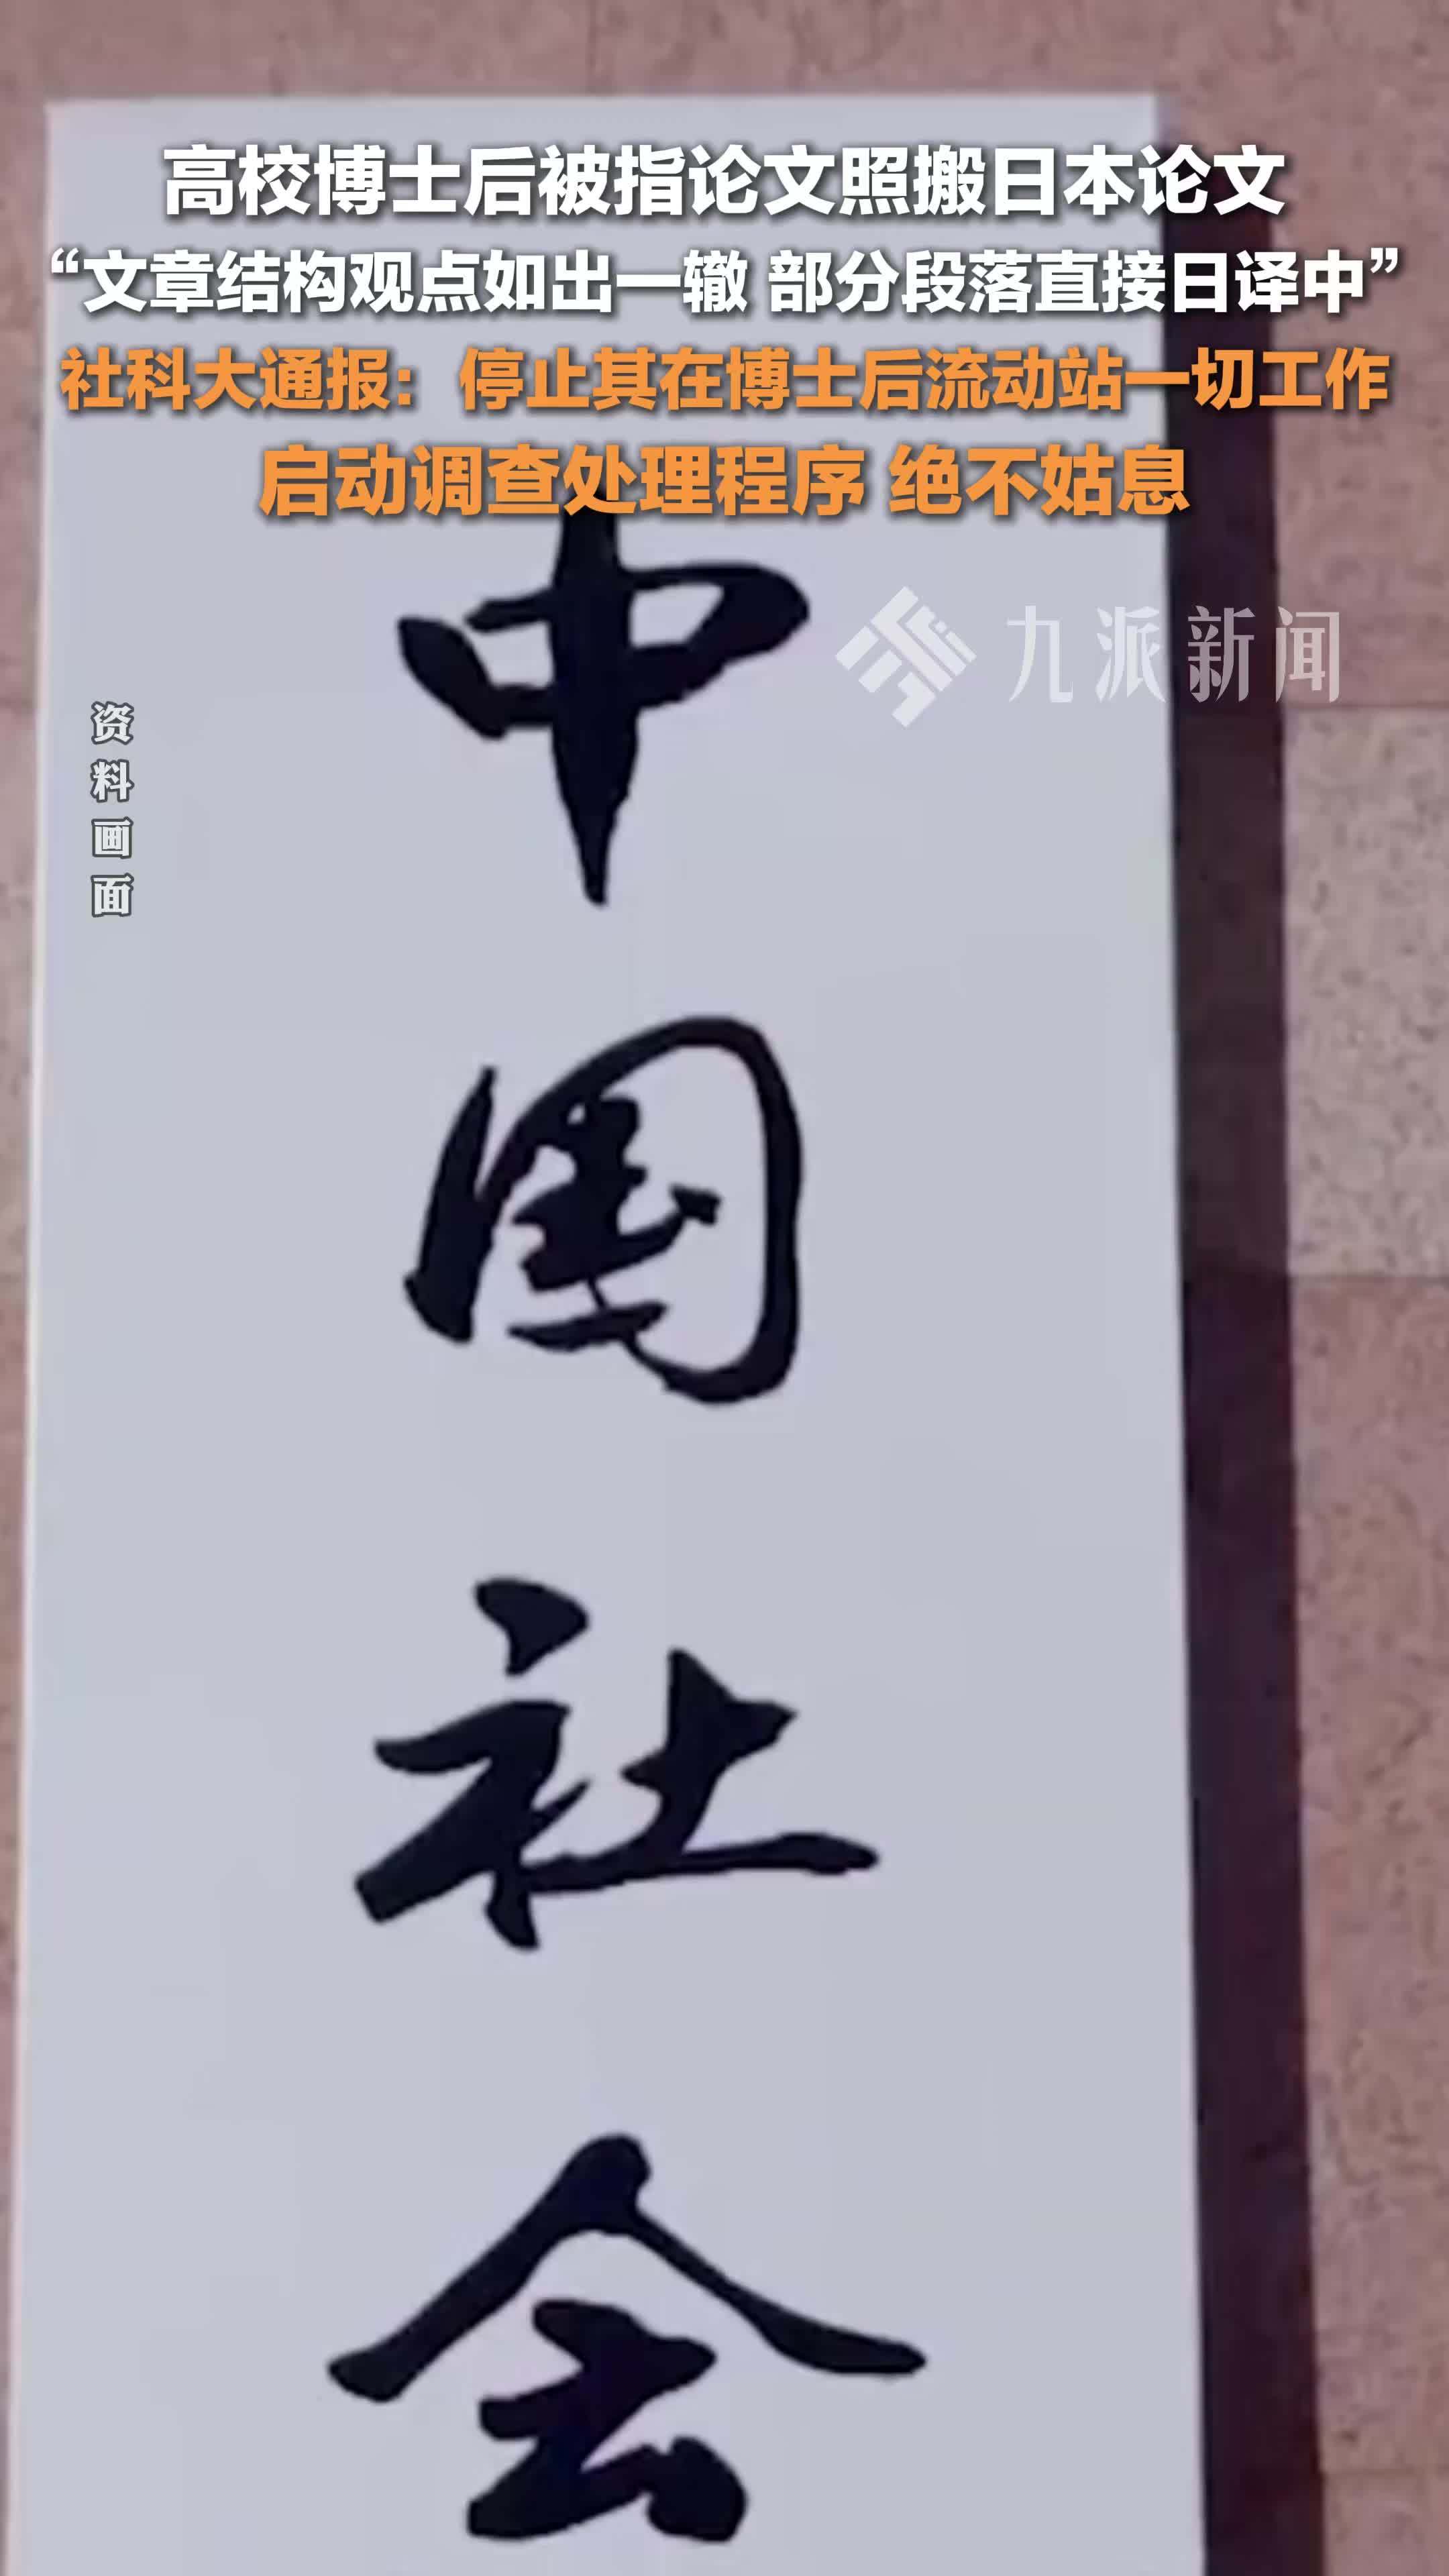 高校博士后被指论文照搬日本论文
“文章结构观点如出一辙 部分段落直接日译中”
社科大通报：停止其在博士后流动站一切工作
启动调查处理程序 绝不姑息
九派新闻
资料画面
中国社会